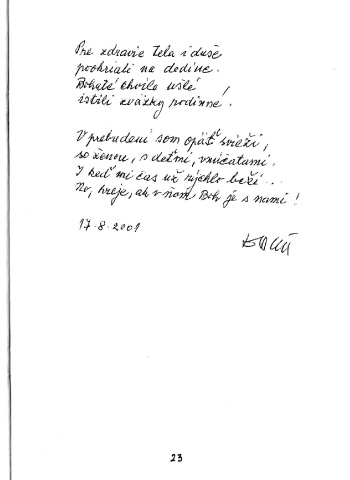 Pre zdravie tela i duše
pookriali na dedine.
Bohaté chvíle ušlé
istili zväzky rodinné!
V prebudení som opäť svieží,
so ženou, s deťmi, vnúčatami.
I keď mi čas už rýchlo beží...
No, hreje, ak v ňom Boh je s nami!
17.8.2001
23